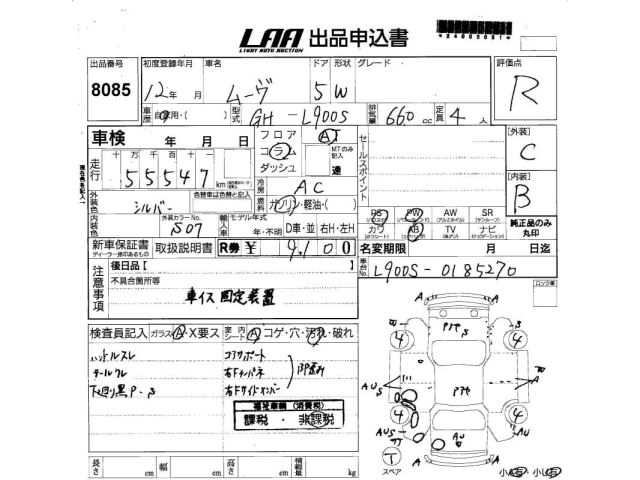 LAA 出品申込書
LIGHT AUTO AUCTION
出品番号 初度登録年月 車名 ドア 形状 グレード 評価点
8085 12年 月 ムーヴ 5 W R
車歴 自家用・( ) 型式 GH - L900S 排気量 660 cc 定員 4 人
車検 年 月 日 フロア AT セールスポイント [外装]
コラム MTのみ記入 C
ダッシュ 速
走行 十万千百十一
55547 km
冷房 AC [内装]
B
外装色 シルバー 色替車は色替と記入 燃料 ガソリン・軽油・( )
PS PW AW SR 純正品のみ丸印
内装色 外装カラーNo. S07 輸入車 モデル年式 年・不明 D車・並 右H・左H カワ AB TV ナビ
新車保証書 取扱説明書 R券 ¥ 9,100 名変期限 月 日迄
ディーラー印のあるもの
車台No. L900S-0185270
注意事項 後日品 [
不具合箇所等
車イス固定装置
ロック車
検査員記入 ガラス A・X要ス 室内シート A コゲ・穴・汚れ・破れ
ハンドルスレ コアサポート
テールワレ
下廻り黒P・S 右Fサイドメンバー
福祉車輌(消費税)
課税 ・ 非課税
長さ cm 幅 cm 高さ cm 積載量 kg
スペア